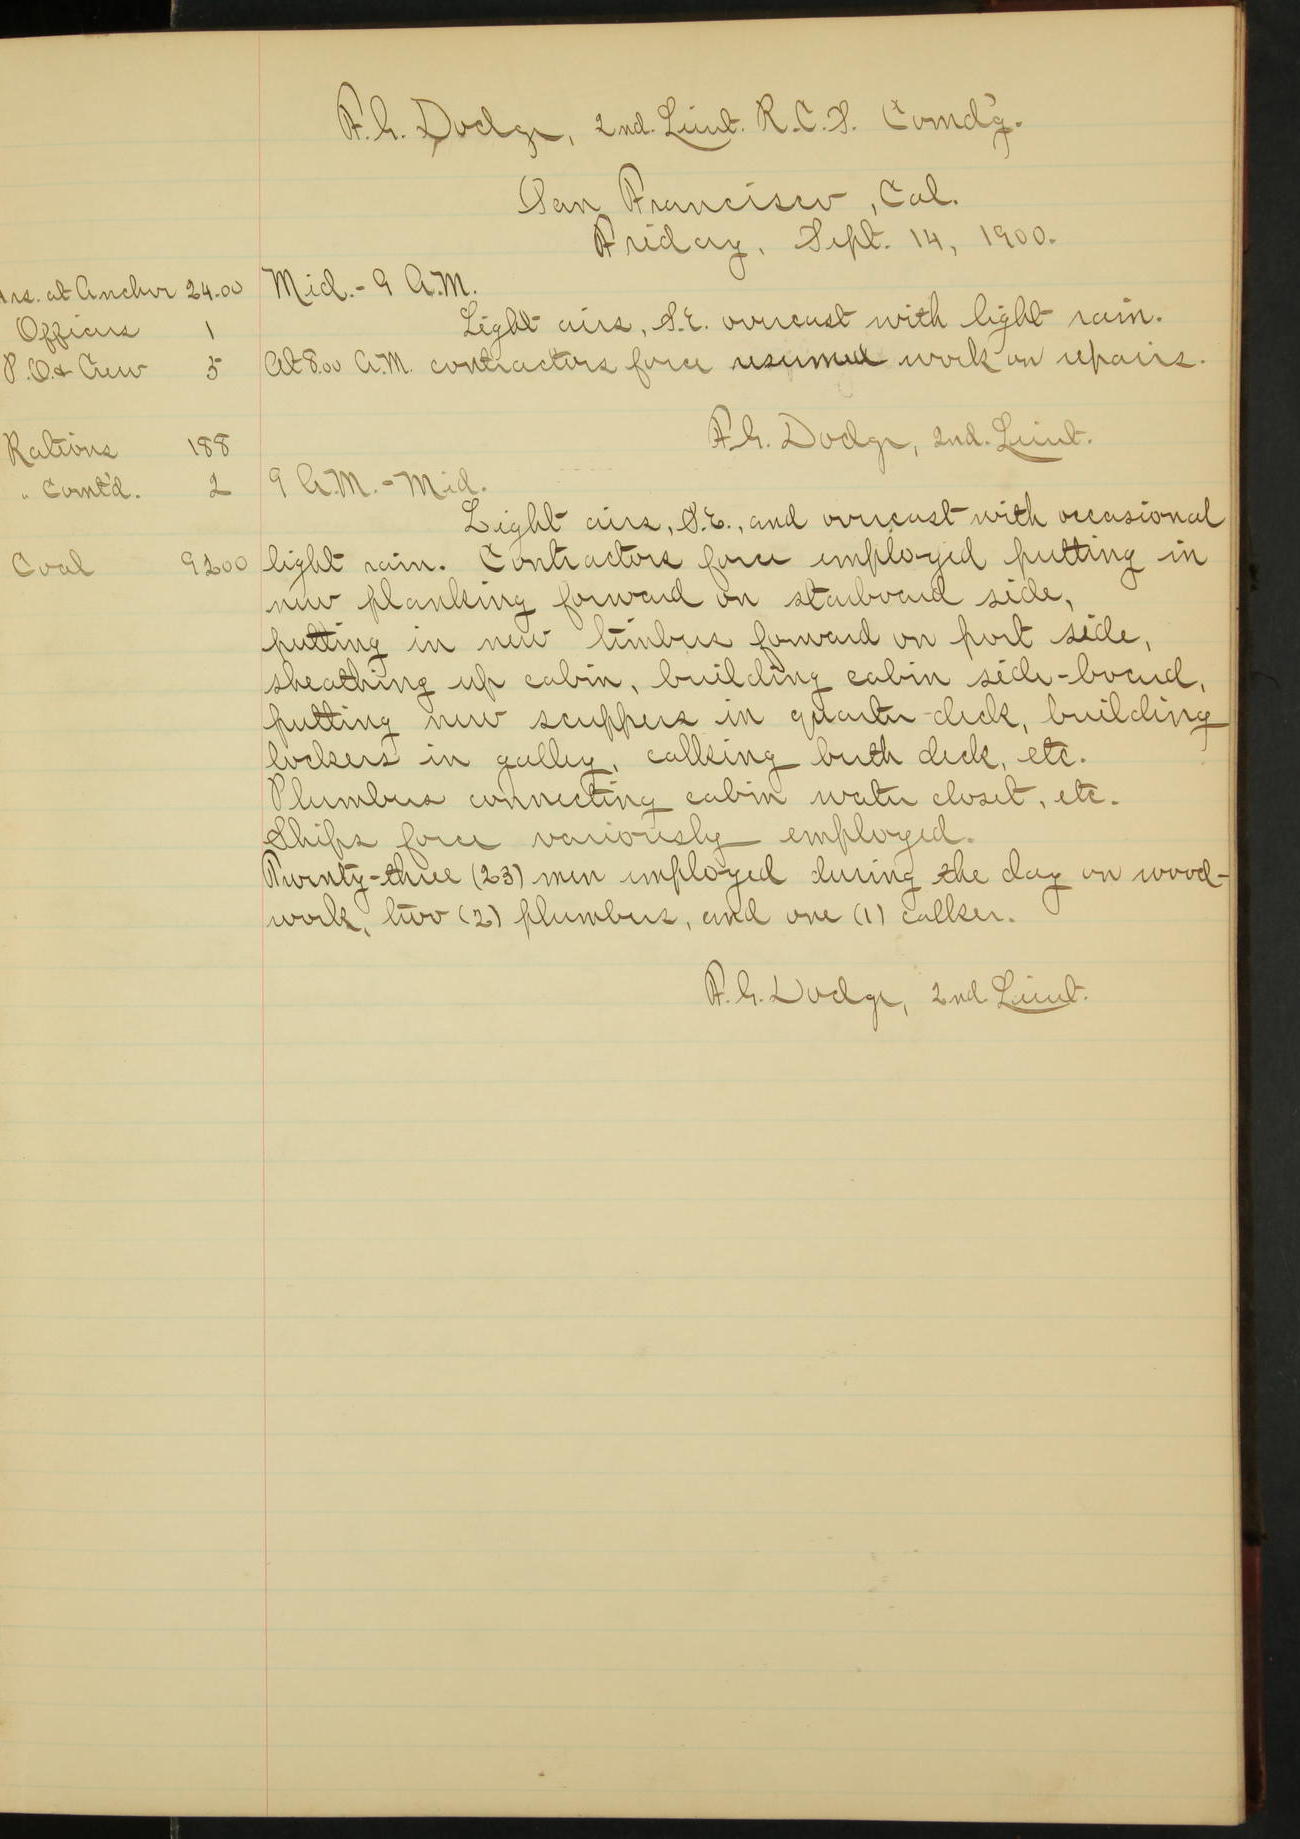 F.G. Dodge, 2nd. Lieut. R.C.S. Comd'g.
San Francisco, Cal.
Friday, Sept. 14, 1900.
Hrs. at Anchor 24.00 Mid. - 9 A.M.
Officers 1 Light airs, S.E. overcast with light rain.
P.O. & Crew 5 At 8.00 A.M. contractors force resumed work on repairs.
F.G. Dodge, 2nd. Lieut.
Rations 188
" Com't'd. 2 9 A.M. - Mid.
Light airs, S.E., and overcast with occasional
Coal 9200 light rain. Contractors force employed putting in
new planking forward on starboard side,
putting in new timbers forward on port side,
sheathing up cabin, building cabin side-board,
putting new scuppers in quarter-deck, building
lockers in galley, calking berth deck, etc.
Plumbers connecting cabin water closet, etc.
Ships force variously employed.
Twenty-three (23) men employed during the day on wood-
work, two (2) plumbers, and one (1) calker.
F.G. Dodge, 2nd Lieut.